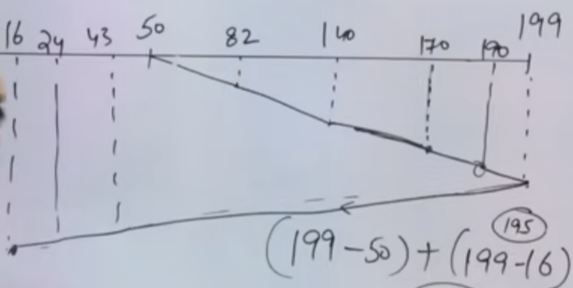 16 24 43 50 82 140 170 190 199
195
(199-50)+(199-16)